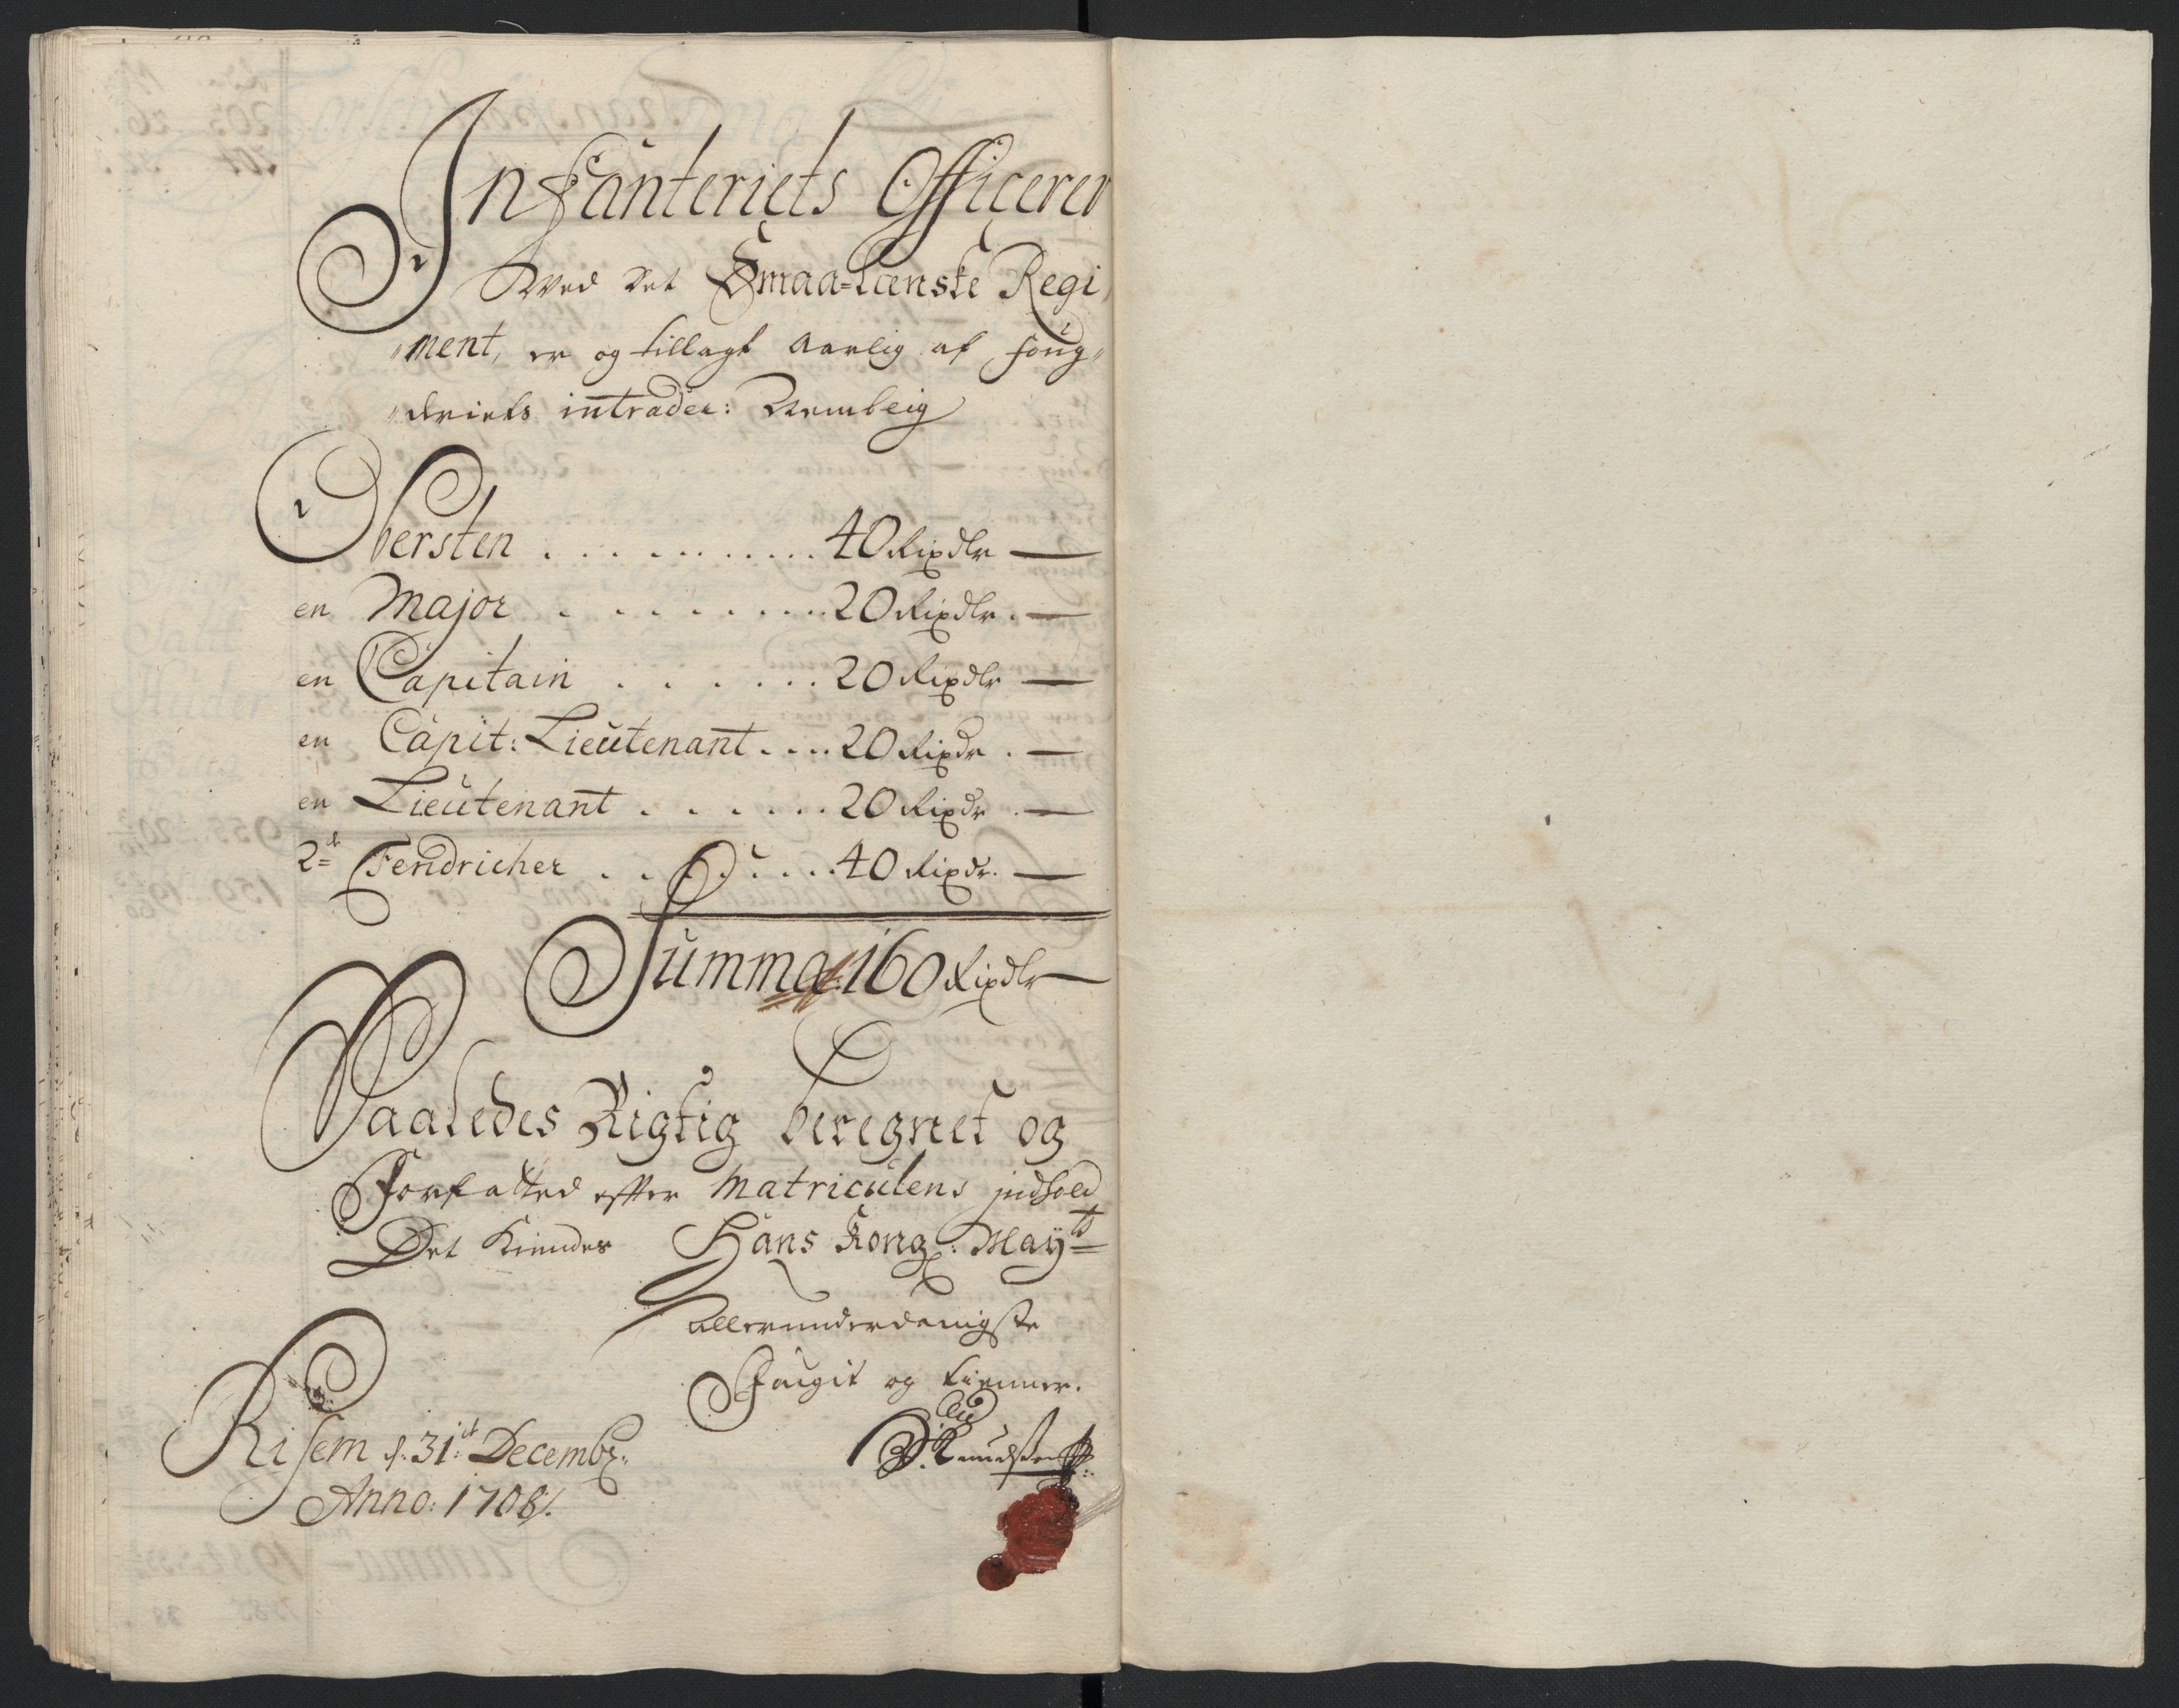 Infanteriets Officerer
Wed det Smaa-Lænske Regi,
„ment, er og tillagt aarlig af foug„
„deriets intrader: Nemblig
Obersten . . . . . . . . . . . 40 Rixdlr —
en Major . . . . . . . . . 20 Rixdlr. —
en Capitain . . . . . . . 20 Rixdlr —
en Capit: Lieutenant . . . . 20 Rixdr. —
en Lieutenant . . . . . . . 20 Rixdr. —
2de Fendricher . . . . . . . . 40 Rixdr. —
Summa 160 Rixdlr —
Saaledes Rigtig beregnet og
Forfatted effter Matriculens jndhold
Det Kiendes Hans Kongl: Mayts
allerunderdanigste
Faugit og tienner.
Knudsen
Risem d. 31t Decembr:
Anno: 1708/.